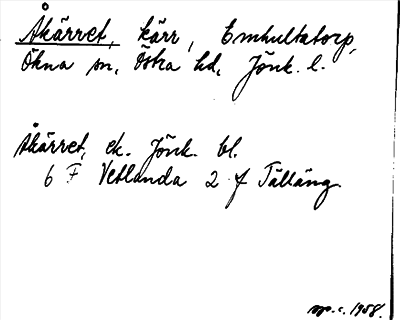 Åkärret, kärr, Emhultatorp,
Ökna sn, Östra hd, Jönk. l.
Åkärret, ek. Jönk. bl.
6 F Vetlanda 2 f Tälläng
op. c. 1958.